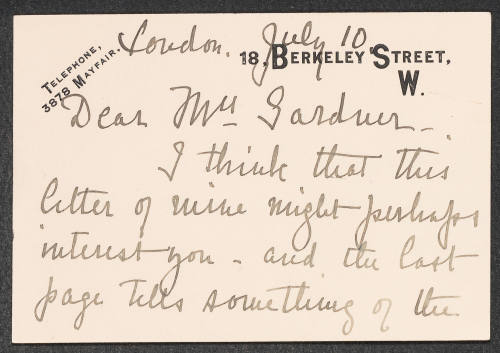 TELEPHONE,
3878 MAYFAIR.
London. July 10
18, BERKELEY STREET,
W.
Dear Mrs Gardner -
I think that this
letter of mine might perhaps
interest you - and the last
page tells something of the